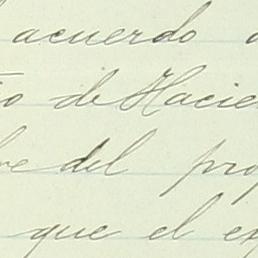 acuerdo
de Hacie
del pro
que el ex